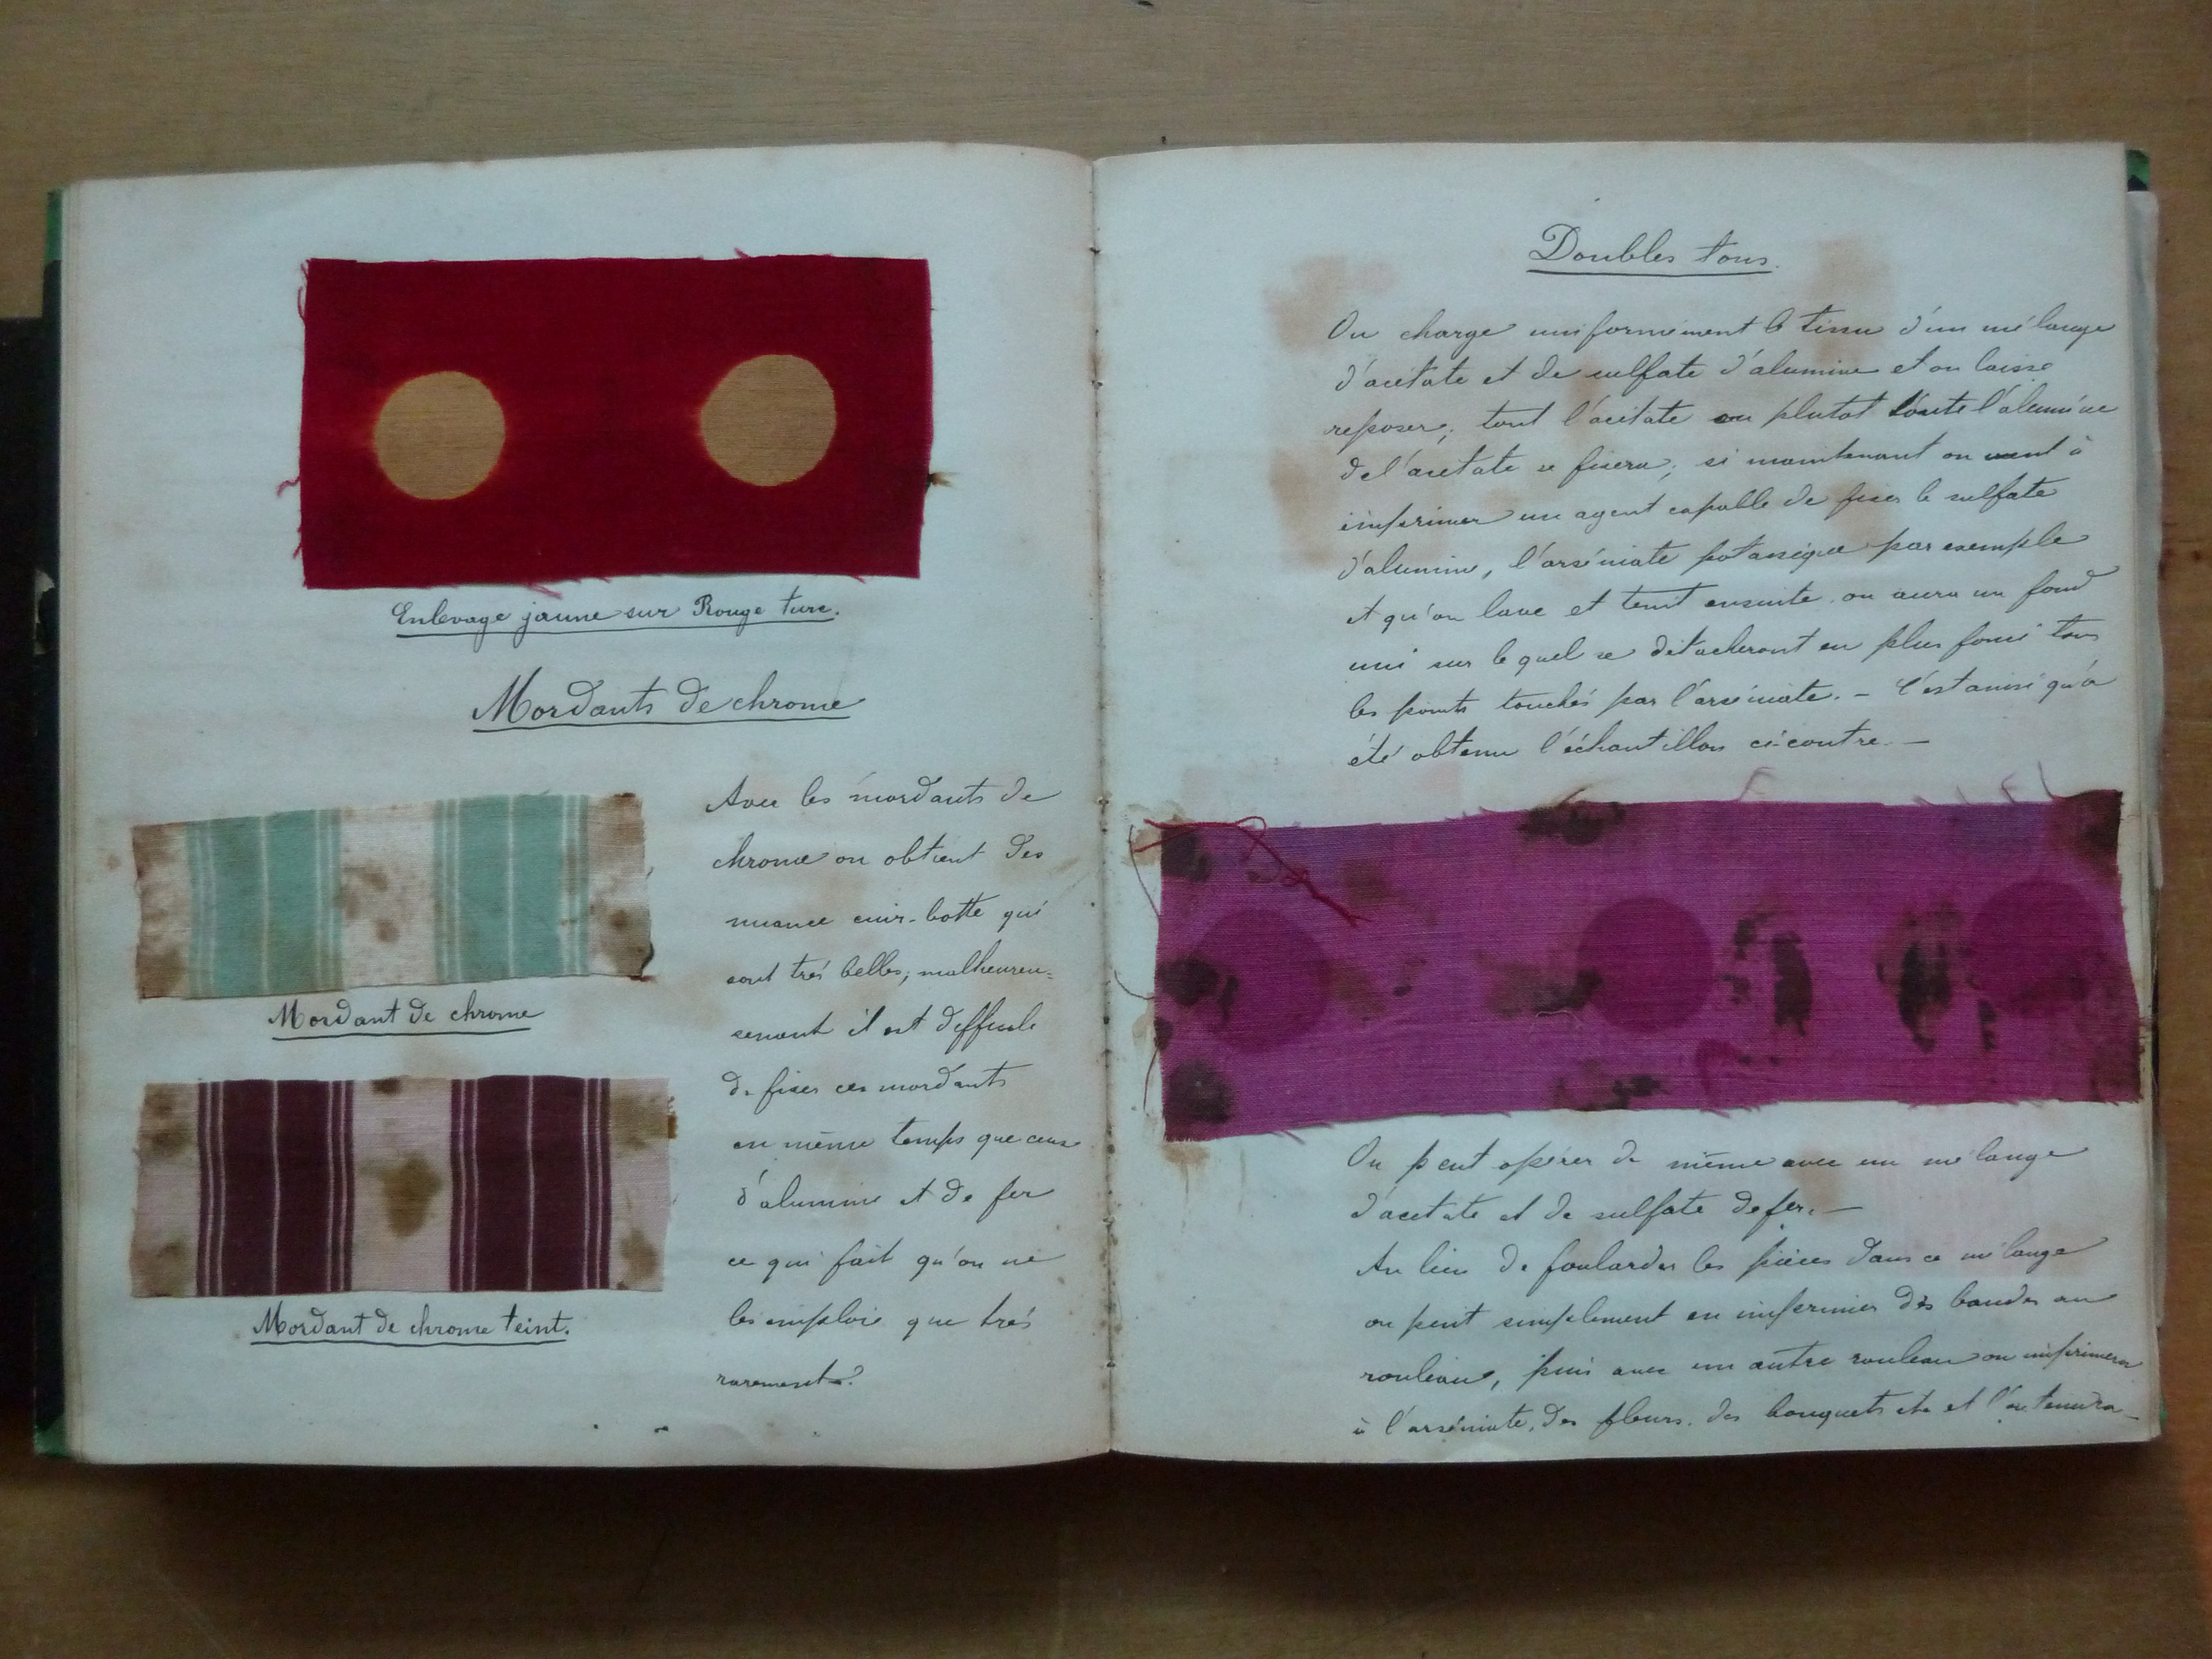 Enlevage jaune sur Rouge turc.
Mordants de chrome
Mordant de chrome
Mordant de chrome teint.
Avec les mordants de
chrome on obtient des
nuance cuir-botte qui
sont très belles; malheureu=
sement il est difficile
de fixer ces mordants
en même temps que ceux
d'alumine et de fer
ce qui fait qu'on ne
les emploie que très
rarement.
Doubles tons.
On charge uniformément le tissu d'un mélange
d'acétate et de sulfate d'alumine et on laisse
reposer; tout l'acétate ou plutot toute l'alumine
de l'acetate se fixera; si maintenant on vient à
imprimer un agent capable de fixer le sulfate
d'alumine, l'arséniate potassique par exemple
et qu'on lave et teint ensuite on aura un fond
uni sur lequel se détacheront en plus foncé tous
les points touchés par l'arséniate. - C'est ainsi qu'a
été obtenu l'échantillon ci-contre. -
On peut opérer de même avec un mélange
d'acetate et de sulfate de fer. -
Au lieu de foularder les pièces dans ce mélange
on peut simplement en imprimer des bandes au
rouleau, puis avec un autre rouleau on imprimera
à l'arséniate, des fleurs, des bouquets etc et l'on teindra